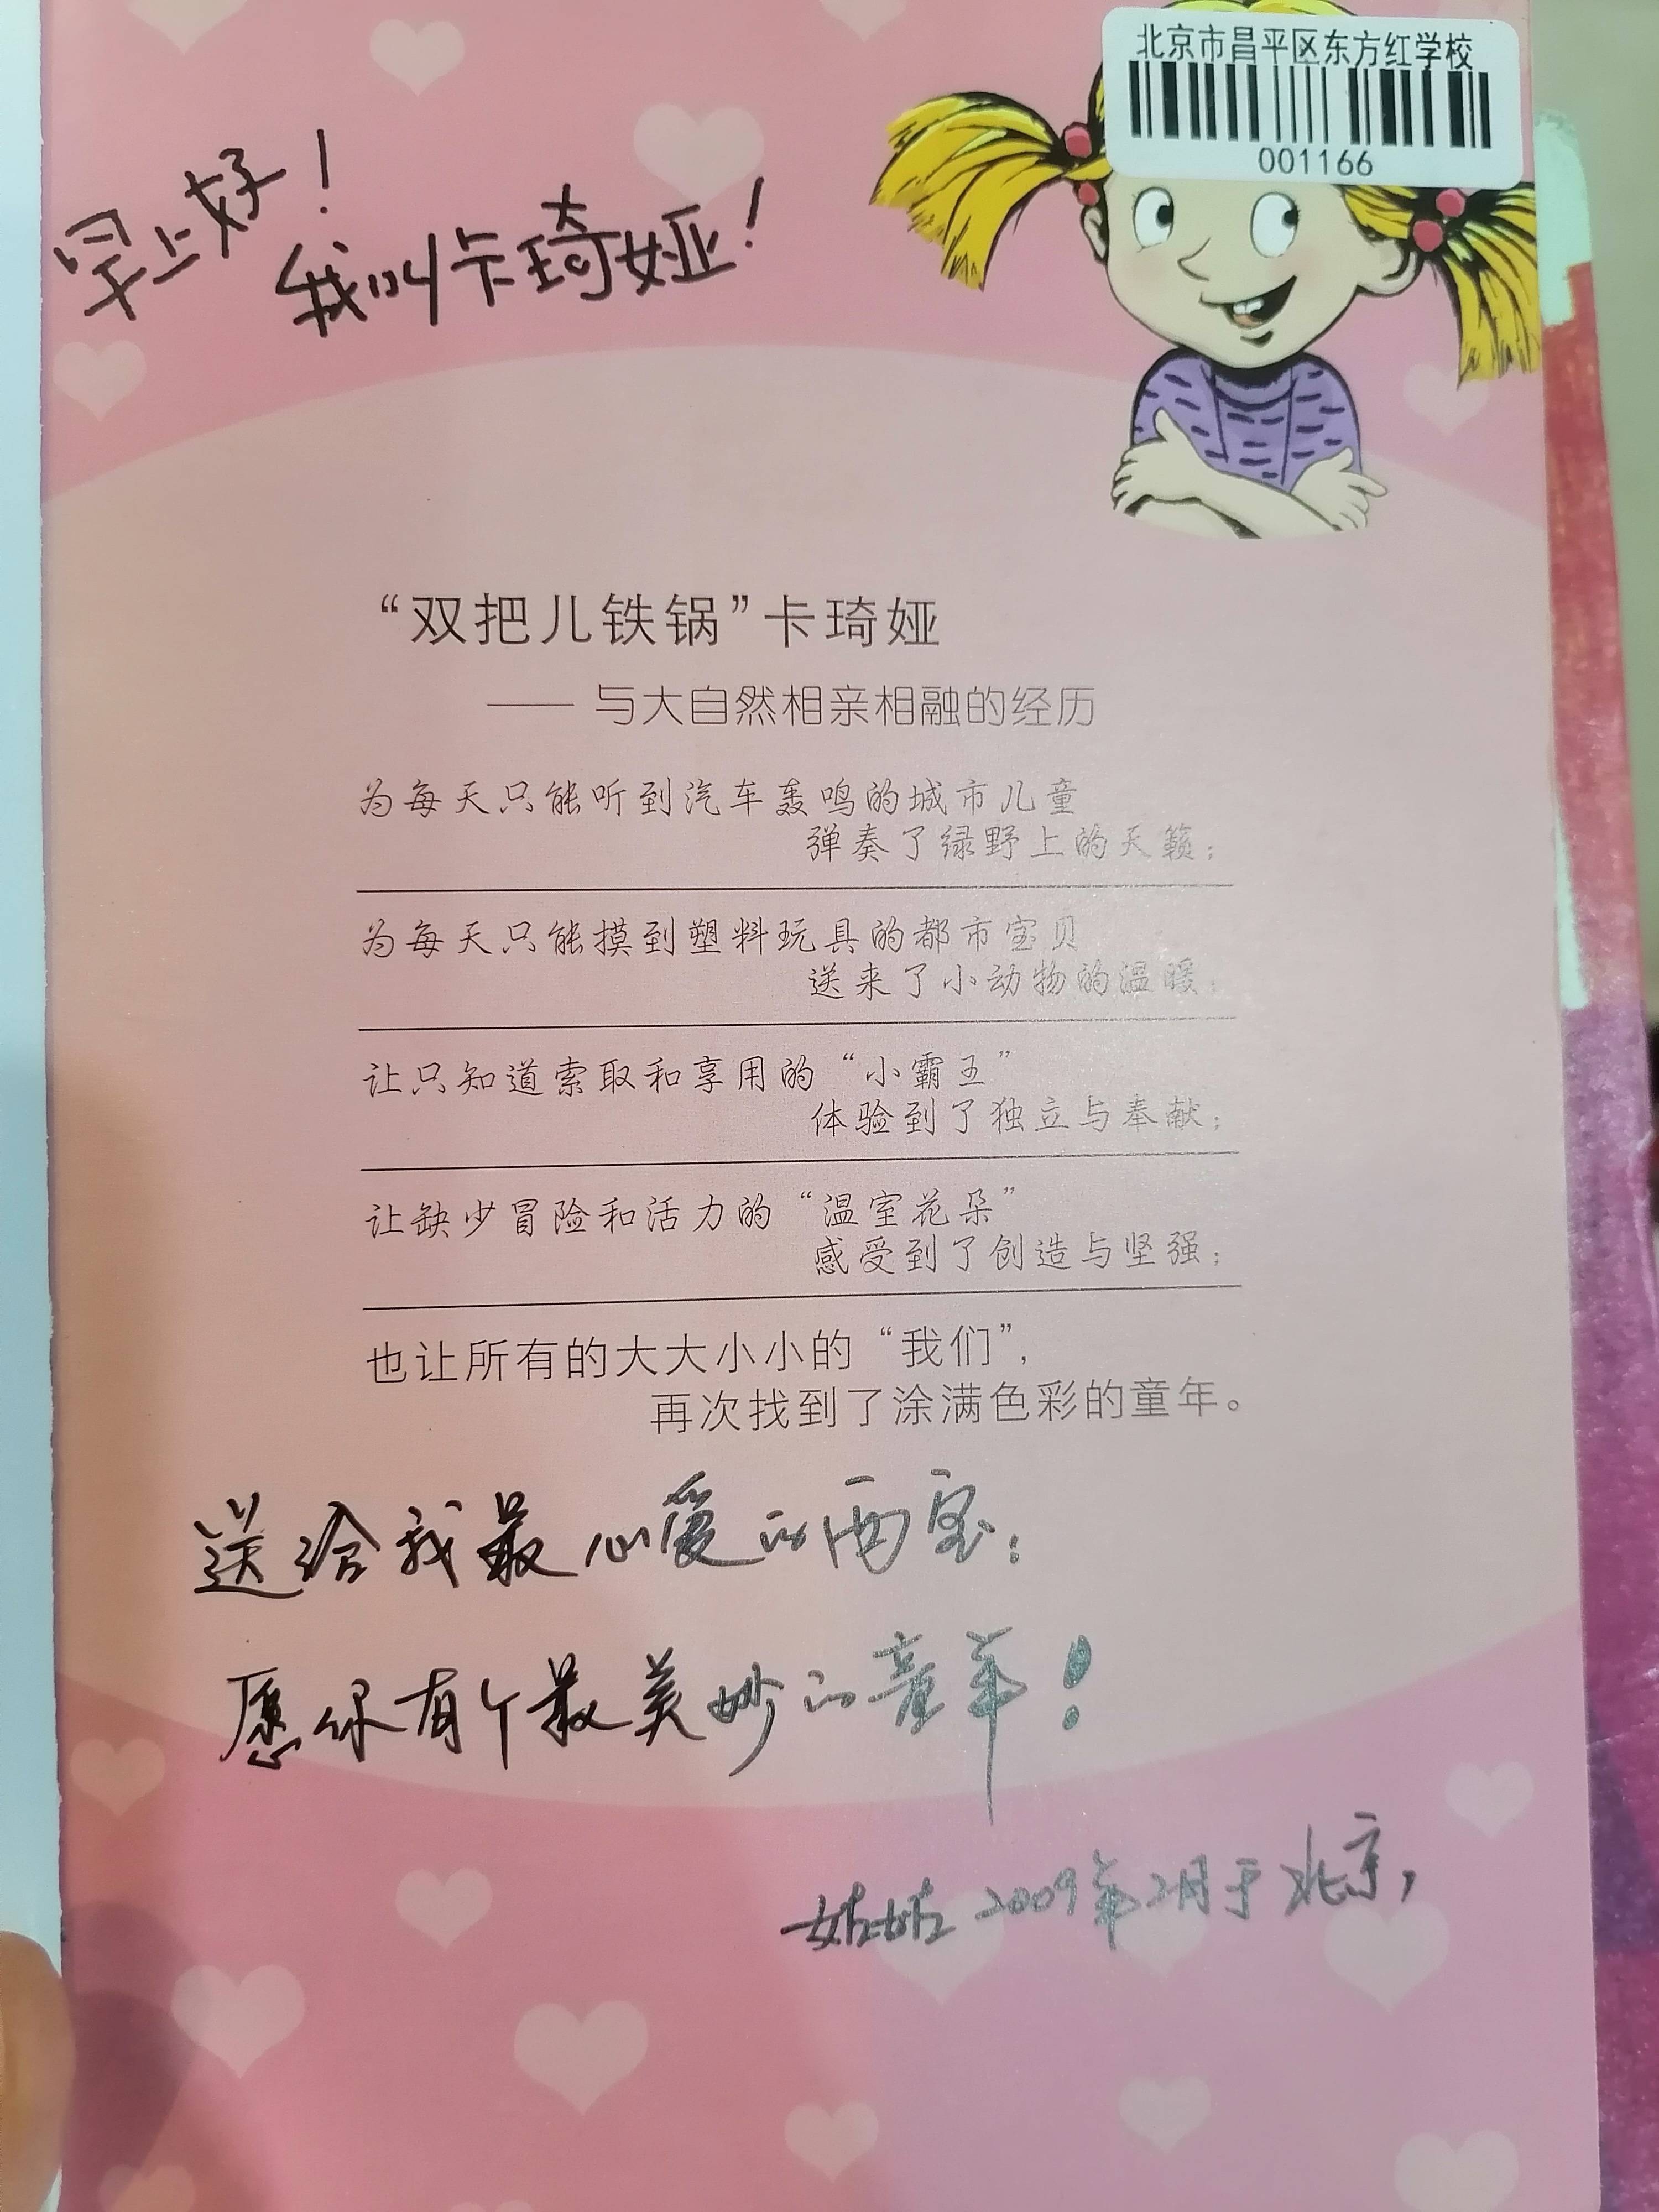 北京市昌平区东方红学校
001166
早上好！
我叫卡琦娅！
“双把儿铁锅”卡琦娅
—— 与大自然相亲相融的经历
为每天只能听到汽车轰鸣的城市儿童
弹奏了绿野上的天籁；
为每天只能摸到塑料玩具的都市宝贝
送来了小动物的温暖；
让只知道索取和享用的“小霸王”
体验到了独立与奉献；
让缺少冒险和活力的“温室花朵”
感受到了创造与坚强；
也让所有的大大小小的“我们”，
再次找到了涂满色彩的童年。
送给我最心爱的西宝：
愿你有个最美妙的童年！
姑姑 2009年2月于北京，